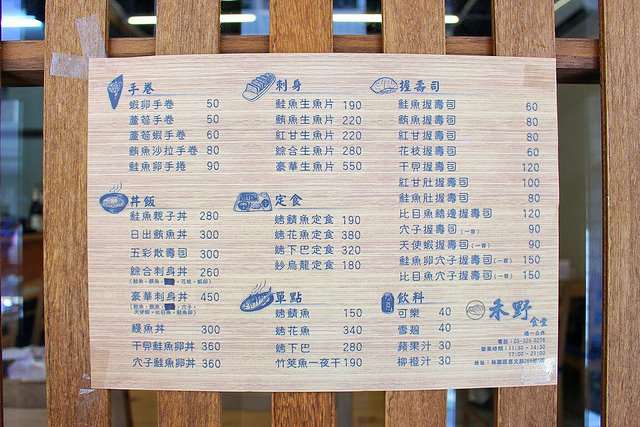 手卷
蝦卵手卷 50
蘆荀手卷 50
蘆荀蝦手卷 60
鮪魚沙拉手卷 80
鮭魚卵手捲 90
刺身
鮭魚生魚片 190
鮪魚生魚片 220
紅甘生魚片 220
綜合生魚片 280
豪華生魚片 550
握壽司
鮭魚握壽司 60
鮪魚握壽司 80
紅甘握壽司 80
花枝握壽司 60
干貝握壽司 120
紅甘肚握壽司 100
鮭魚肚握壽司 80
比目魚鰭邊握壽司 120
穴子握壽司(一貫) 90
天使蝦握壽司(一貫) 90
鮭魚卵穴子握壽司(一貫) 150
比目魚穴子握壽司(一貫) 150
丼飯
鮭魚親子丼 280
日出鮪魚丼 300
五彩散壽司 300
綜合刺身丼 260
豪華刺身丼 450
鰻魚丼 300
干貝鮭魚卵丼 360
穴子鮭魚卵丼 360
定食
烤鯖魚定食 190
烤花魚定食 380
烤下巴定食 320
炒烏龍定食 180
單點
烤鯖魚 150
烤花魚 340
烤下巴 280
竹筴魚一夜干 190
飲料
可樂 40
雪碧 40
蘋果汁 30
柳橙汁 30
禾野
食堂
週一公休
電話：03-326 0276
營業時間：11:30 - 14:30
17:00 - 21:00